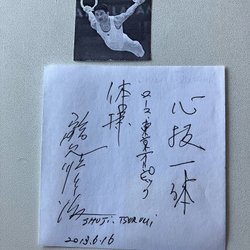 心技一体
ローマ 東京オリンピック
体操
鶴見修治
SHUJI. TSURUMI
2013.6.16